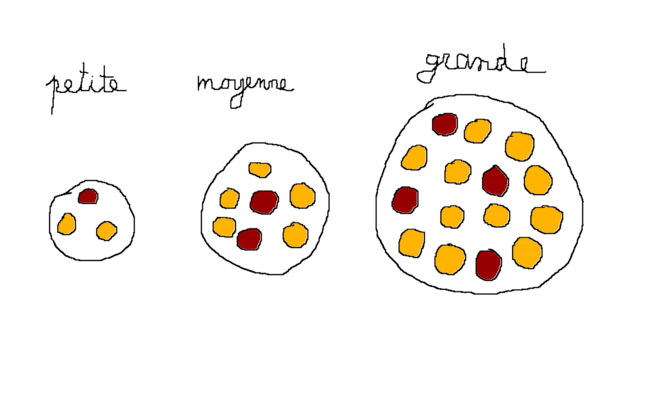 petite moyenne grande